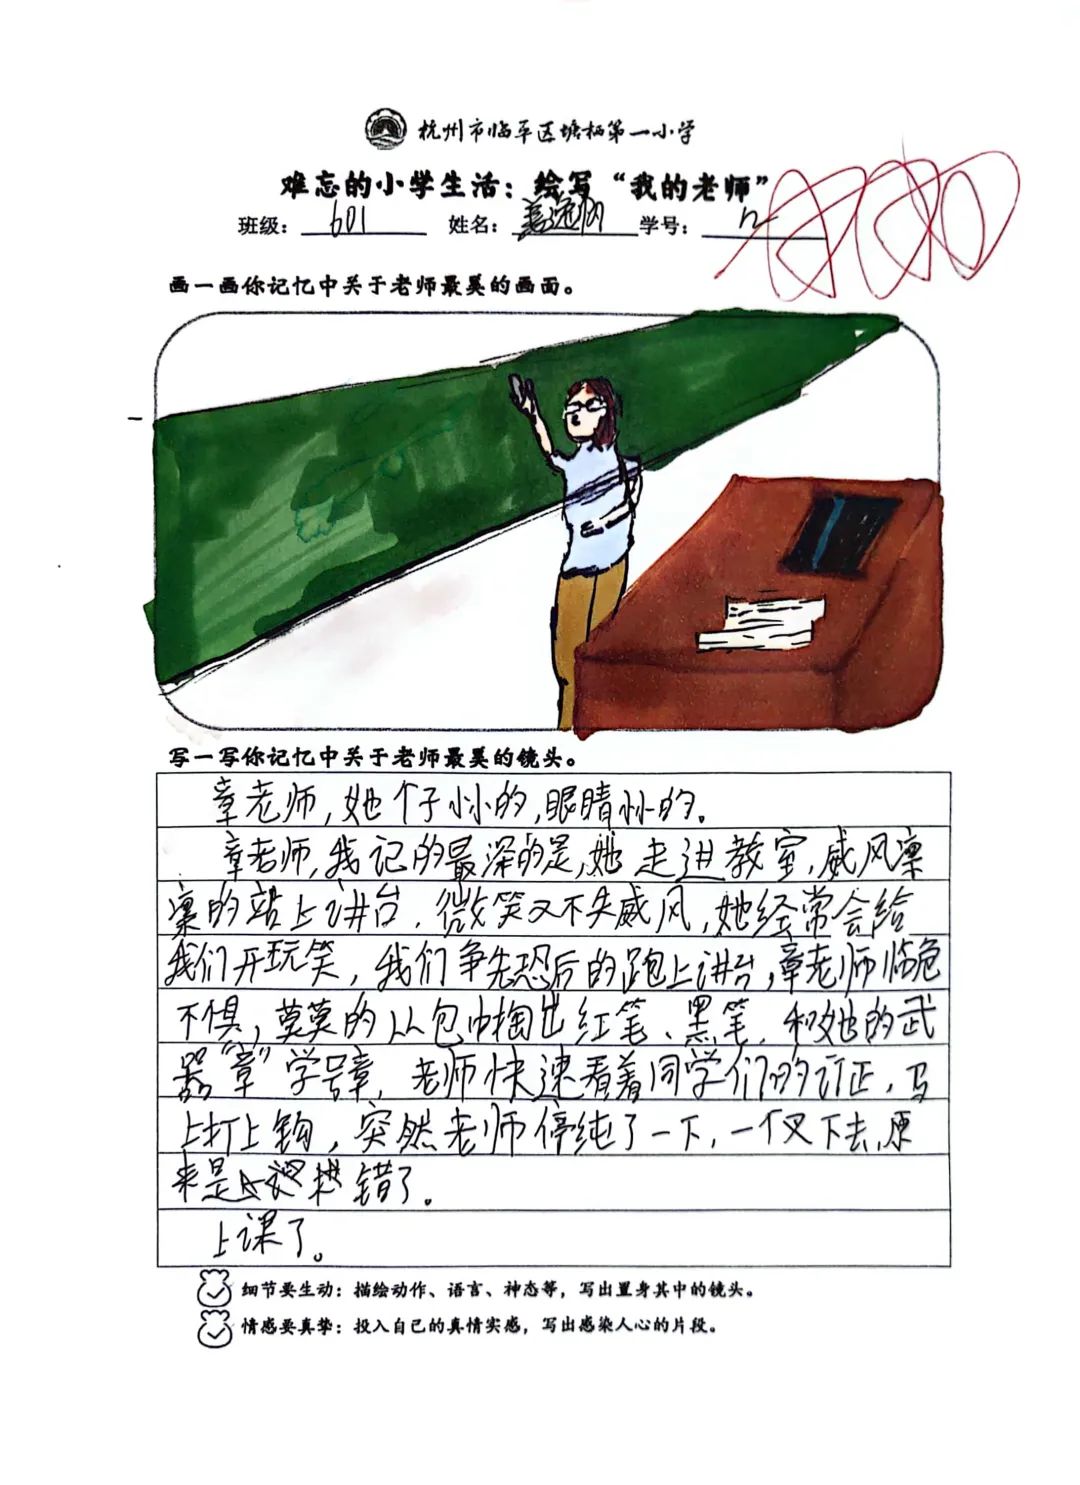 杭州市临平区塘栖第一小学
难忘的小学生活：绘写“我的老师”
班级：601 姓名：逸 学号：12
画一画你记忆中关于老师最美的画面。
写一写你记忆中关于老师最美的镜头。
章老师，她个子小小的，眼睛小小的。
章老师，我记的最深的是，她走进教室，威风凛
凛的站上讲台，微笑又不失威风，她经常会给
我们开玩笑，我们争先恐后的跑上讲台，章老师临危
不惧，莫莫的从包中掏出红笔、黑笔，和她的武
器“章”学号章，老师快速看着同学们的订正，马
上打上钩，突然老师停纯了一下，一个叉下去，原
来是错了。
上课了。
细节要生动：描绘动作、语言、神态等，写出置身其中的镜头。
情感要真挚：投入自己的真情实感，写出感染人心的片段。